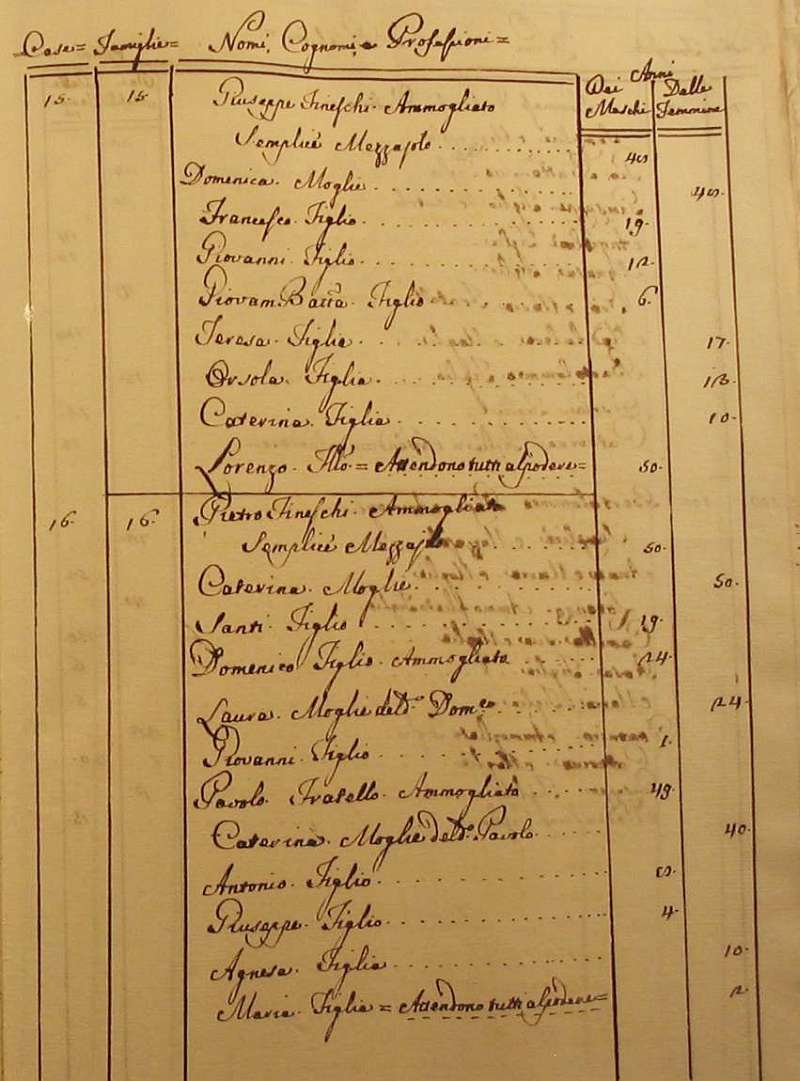 Case= Famiglie= Nomi, Cognomi, e Professioni=
Anni
Dei Maschi Delle Femmine
15. 15. Giuseppe Fineschi. Ammogliato
Semplice Mezzajolo
Domenica. Moglie.
Francesco. Figlio. 19.
Giovanni. Figlio. 12.
Giovam Batta. Figlio 6.
Teresa. Figlia. 17.
Orsola. Figlia. 13.
Caterina. Figlia. 10.
Lorenzo. Fllo = Attendono tutti al Podere= 50.
16. 16. Pietro Fineschi. Ammogliato
Semplice Mezzajolo 50.
Caterina. Moglie. 50.
Santi. Figlio 19.
Domenico. Figlio. Ammogliato 24.
Laura. Moglie del do. Domco. 24.
Giovanni. Figlio 1.
Pavolo. Fratello. Ammogliato 49.
Caterina. Moglie del do. Pavolo 40.
Antonio. Figlio
Giuseppe. Figlio 4.
Agnesa. Figlia 10.
Maria. Figlia = Attendono tutti al Podere= 2.